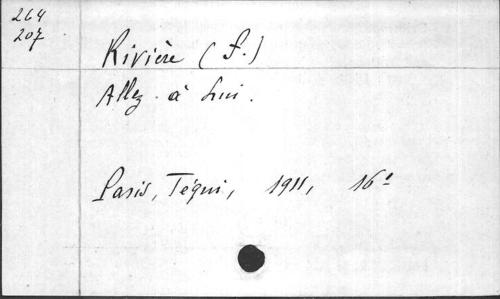 264
207
Rivière (J.)
Allez à Lui.
Paris, Téqui, 1911, 16°